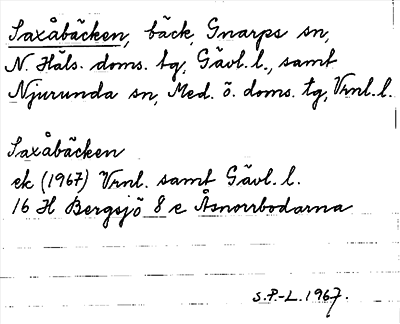 Saxåbäcken, bäck, Gnarps sn,
N. Häls. doms. tg, Gävl. l., samt
Njurunda sn, Med. ö. doms. tg, Vrnl. l.
Saxåbäcken
ek (1967) Vrnl. samt Gävl. l.
16 H Bergsjö 8 e Åsnorrbodarna
S.P.-L. 1967.